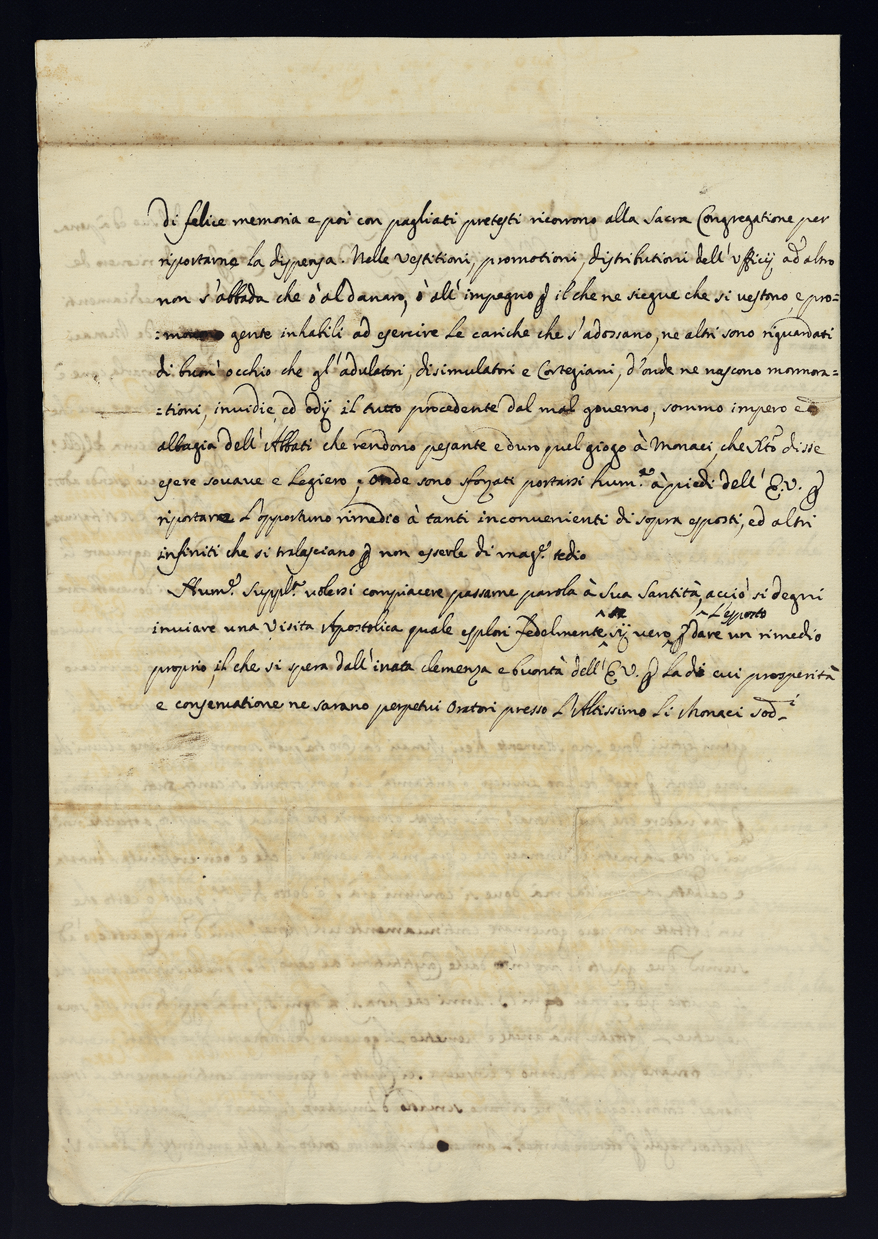 di felice memoria e poi con pagliati pretesti ricorrono alla Sacra Congregatione per
riportarne la dispensa. Nelle Vestitioni, promotioni, distributioni dell'Ufficij ad altro
non s'abbada che ò al danaro, ò all'impegno ꝑ il che ne siegue che si vestono, e pro=
gente inhabili ad esercire le cariche che s'adossano, ne altri sono riguardati
di buon occhio che gl'adulatori, disimulatori e Cortegiani, d'onde ne nascono mormora=
:tioni, invidie, ed odij il tutto procedente dal mal governo, sommo impero e
albagia dell'Abbati che rendono pesante e duro quel giogo à Monaci, che Xto disse
esere souave e legiero; onde sono sforzati portarsi hum.te à piedi dell'E.V. ꝑ
riportarne l'opportuno rimedio à tanti inconvenienti di sopra esposti, ed altri
infiniti che si tralasciano ꝑ non esserle di mag.r tedio
Hum.e suppl.e volersi compiacere passarne parola à Sua Santità, acciò si degni
inviare una Visita Apostolica quale esplori fedelmente se l'esposto
sij vero, ꝑ dare un rimedio
proprio, il che si spera dall'inata clemenza e buontà dell'E.V. ꝑ la di cui prosperità
e conservatione ne sarano perpetui Oratori presso l'Altissimo li Monaci sod.i